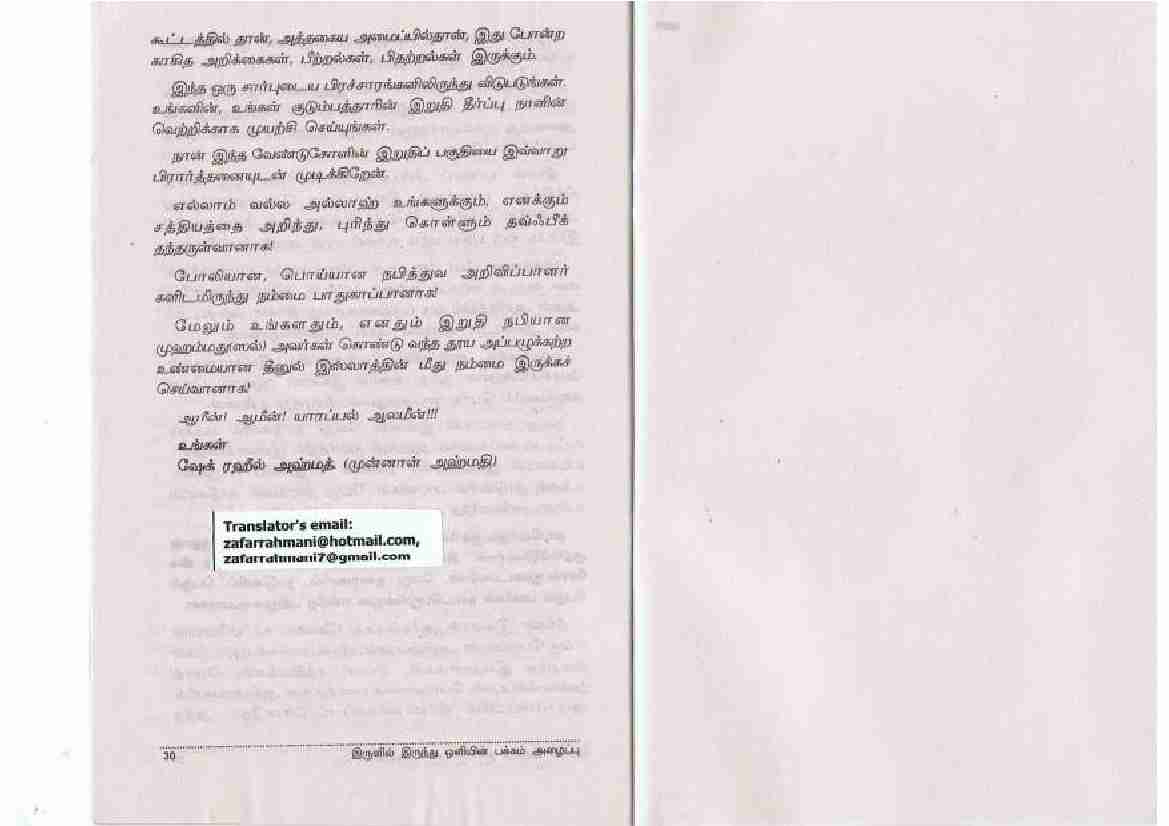 கூட்டத்தில் தான், அத்தகைய அமைப்பில்தான், இது போன்ற
காகித அறிக்கைகள், பீற்றல்கள், பிதற்றல்கள் இருக்கும்.
இந்த ஒரு சார்புடைய பிரச்சாரங்களிலிருந்து விடுபடுங்கள்.
உங்களின், உங்கள் குடும்பத்தாரின் இறுதி தீர்ப்பு நாளின்
வெற்றிக்காக முயற்சி செய்யுங்கள்.
நான் இந்த வேண்டுகோளின் இறுதிப் பகுதியை இவ்வாறு
பிரார்த்தனையுடன் முடிக்கிறேன்.
எல்லாம் வல்ல அல்லாஹ் உங்களுக்கும், எனக்கும்
சத்தியத்தை அறிந்து, புரிந்து கொள்ளும் தவ்ஃபீக்
தந்தருள்வானாக!
போலியான, பொய்யான நபித்துவ அறிவிப்பாளர்
களிடமிருந்து நம்மை பாதுகாப்பானாக!
மேலும் உங்களதும், எனதும் இறுதி நபியான
முஹம்மது(ஸல்) அவர்கள் கொண்டு வந்த தூய அப்பழுக்கற்ற
உண்மையான தீனுல் இஸ்லாத்தின் மீது நம்மை இருக்கச்
செய்வானாக!
ஆமீன்! ஆமீன்! யாரப்பல் ஆலமீன்!!!
உங்கள்
ஷேக் ரஹீல் அஹ்மத் (முன்னாள் அஹ்மதி)
Translator's email:
zafarrahmani@hotmail.com,
zafarrahmani7@gmail.com
30 இருளில் இருந்து ஒளியின் பக்கம் அழைப்பு